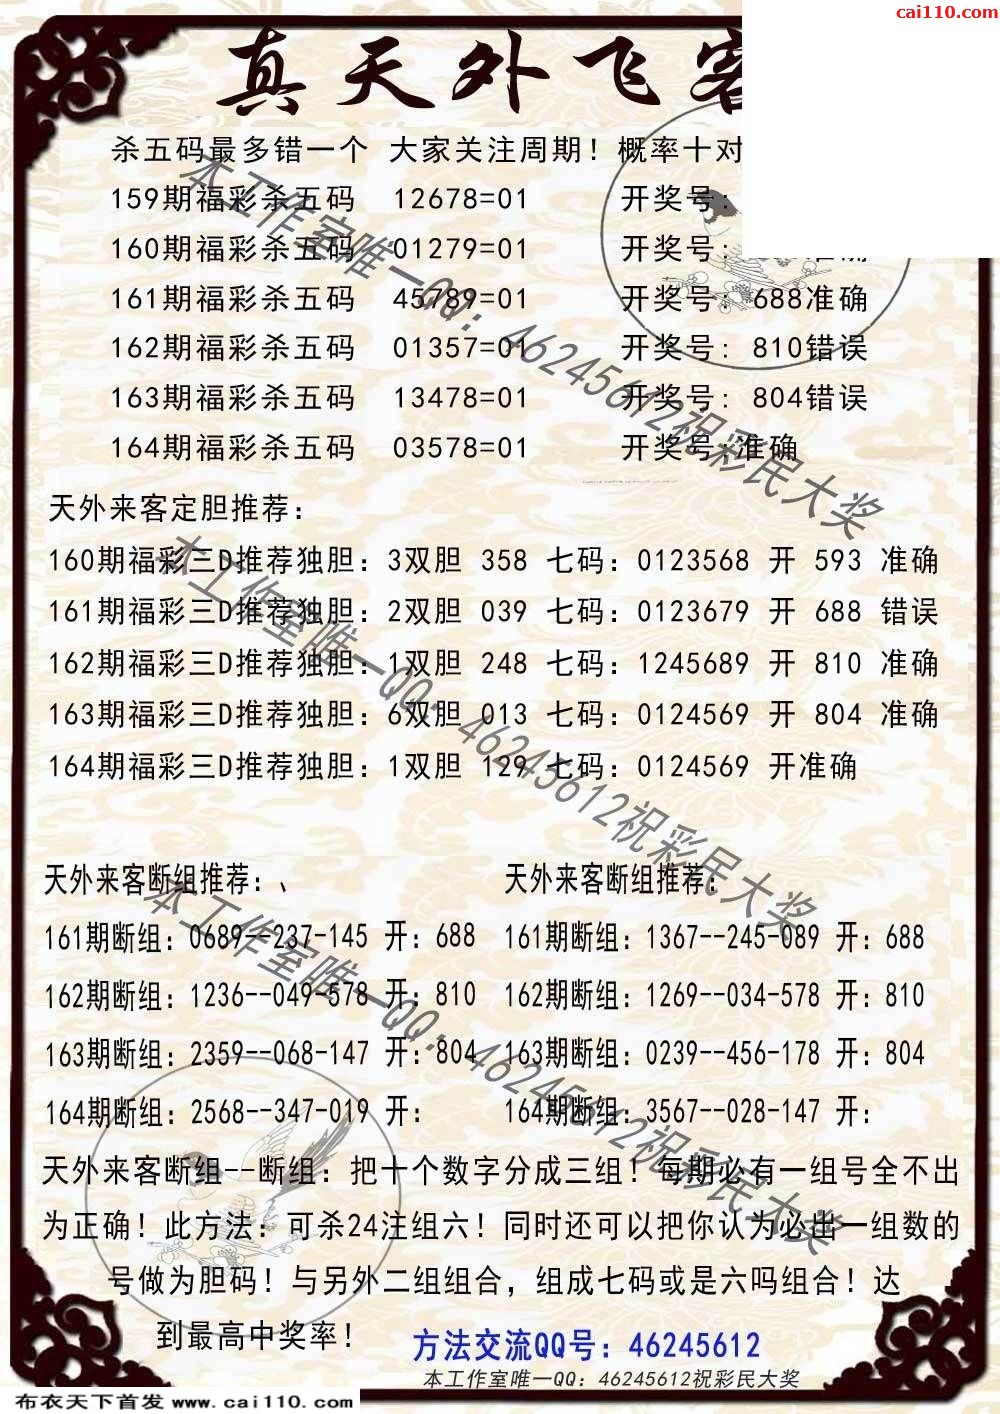 cai110.com
真天外飞客
杀五码最多错一个 大家关注周期！概率十对
159期福彩杀五码 12678=01 开奖号:
160期福彩杀五码 01279=01 开奖号: 准确
161期福彩杀五码 45789=01 开奖号: 688准确
162期福彩杀五码 01357=01 开奖号: 810错误
163期福彩杀五码 13478=01 开奖号: 804错误
164期福彩杀五码 03578=01 开奖号:准确
天外来客定胆推荐:
160期福彩三D推荐独胆: 3双胆 358 七码: 0123568 开 593 准确
161期福彩三D推荐独胆: 2双胆 039 七码: 0123679 开 688 错误
162期福彩三D推荐独胆: 1双胆 248 七码: 1245689 开 810 准确
163期福彩三D推荐独胆: 6双胆 013 七码: 0124569 开 804 准确
164期福彩三D推荐独胆: 1双胆 129 七码: 0124569 开准确
天外来客断组推荐:、 天外来客断组推荐:
161期断组: 0689--237-145 开: 688 161期断组: 1367--245-089 开: 688
162期断组: 1236--049-578 开: 810 162期断组: 1269--034-578 开: 810
163期断组: 2359--068-147 开: 804 163期断组: 0239--456-178 开: 804
164期断组: 2568--347-019 开: 164期断组: 3567--028-147 开:
天外来客断组--断组: 把十个数字分成三组！每期必有一组号全不出
为正确！此方法: 可杀24注组六！同时还可以把你认为必出一组数的
号做为胆码！与另外二组组合，组成七码或是六吗组合！达
到最高中奖率！
方法交流QQ号: 46245612
本工作室唯一QQ: 46245612祝彩民大奖
布衣天下首发 www.cai110.com
本工作室唯一QQ: 46245612祝彩民大奖
本工作室唯一QQ: 46245612祝彩民大奖
本工作室唯一QQ: 46245612祝彩民大奖